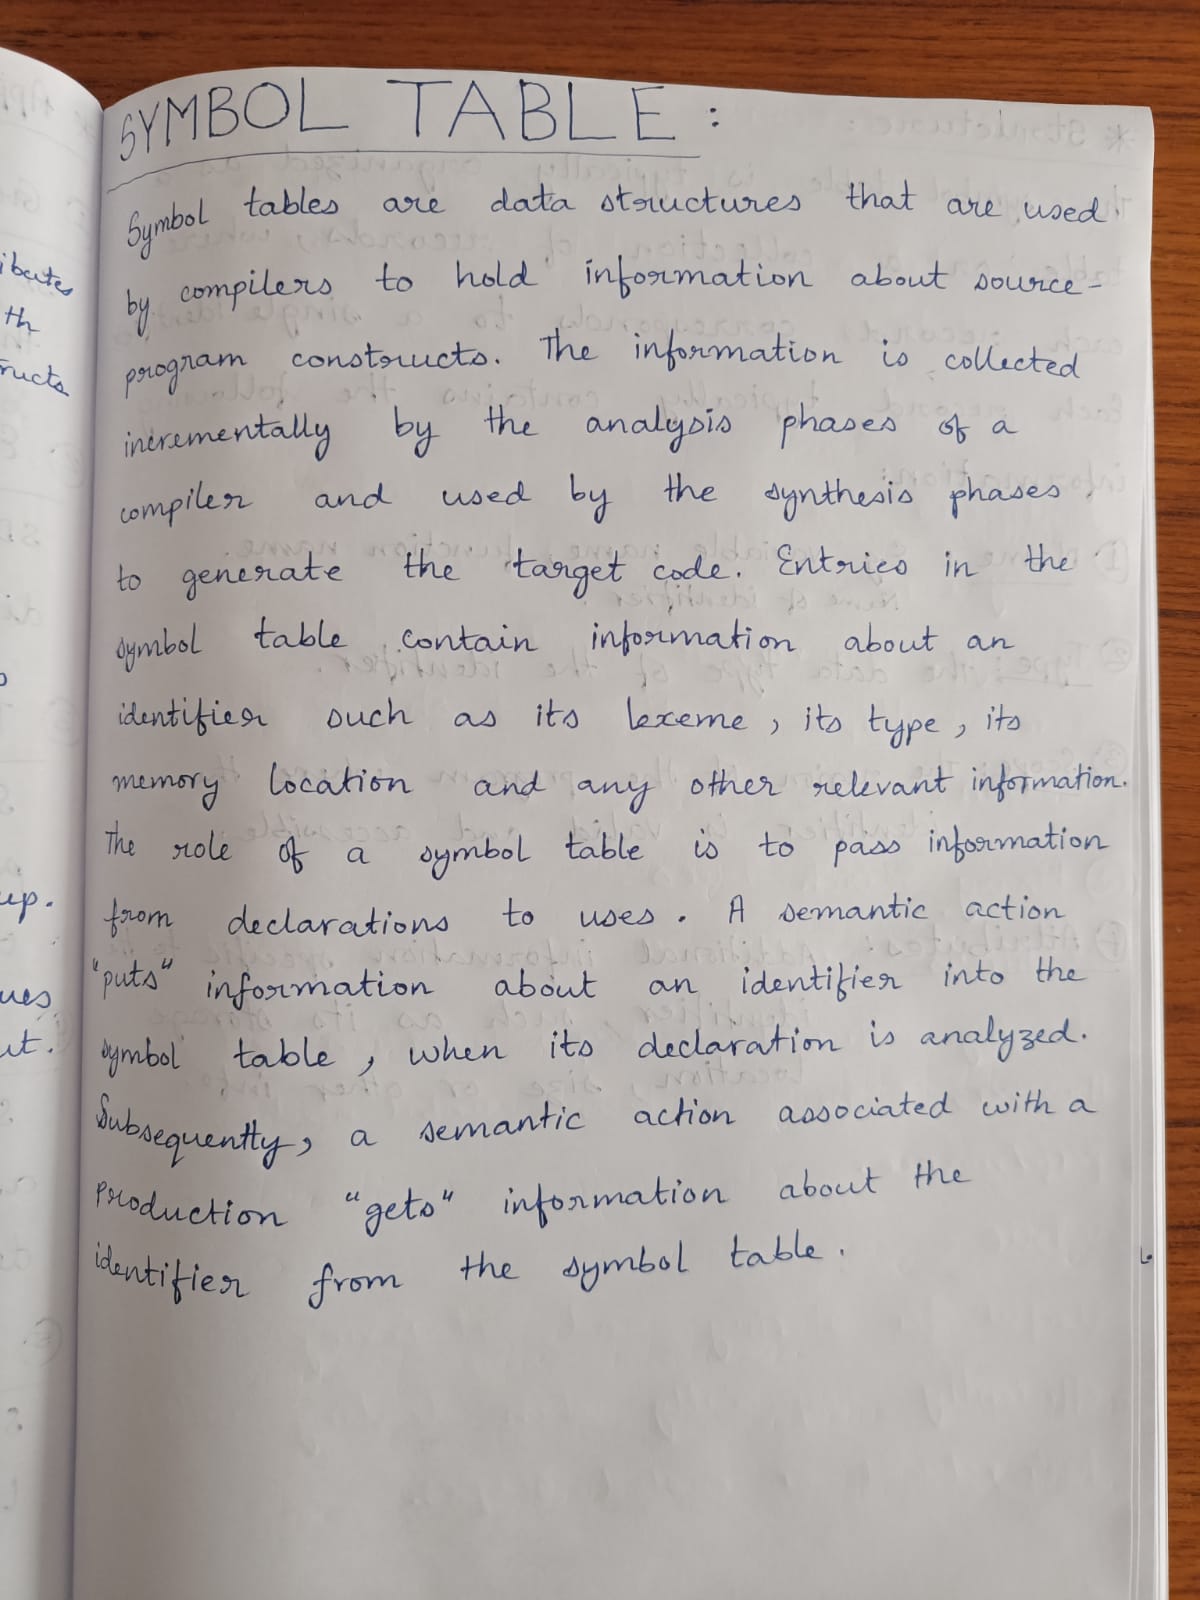 SYMBOL TABLE :
Symbol tables are data structures that are used
by compilers to hold information about source-
program constructs. The information is collected
incrementally by the analysis phases of a
compiler and used by the synthesis phases
to generate the target code. Entries in the
symbol table contain information about an
identifier such as its lexeme, its type, its
memory location and any other relevant information.
The role of a symbol table is to pass information
from declarations to uses. A semantic action
"puts" information about an identifier into the
symbol table, when its declaration is analyzed.
Subsequently, a semantic action associated with a
production "gets" information about the
identifier from the symbol table.